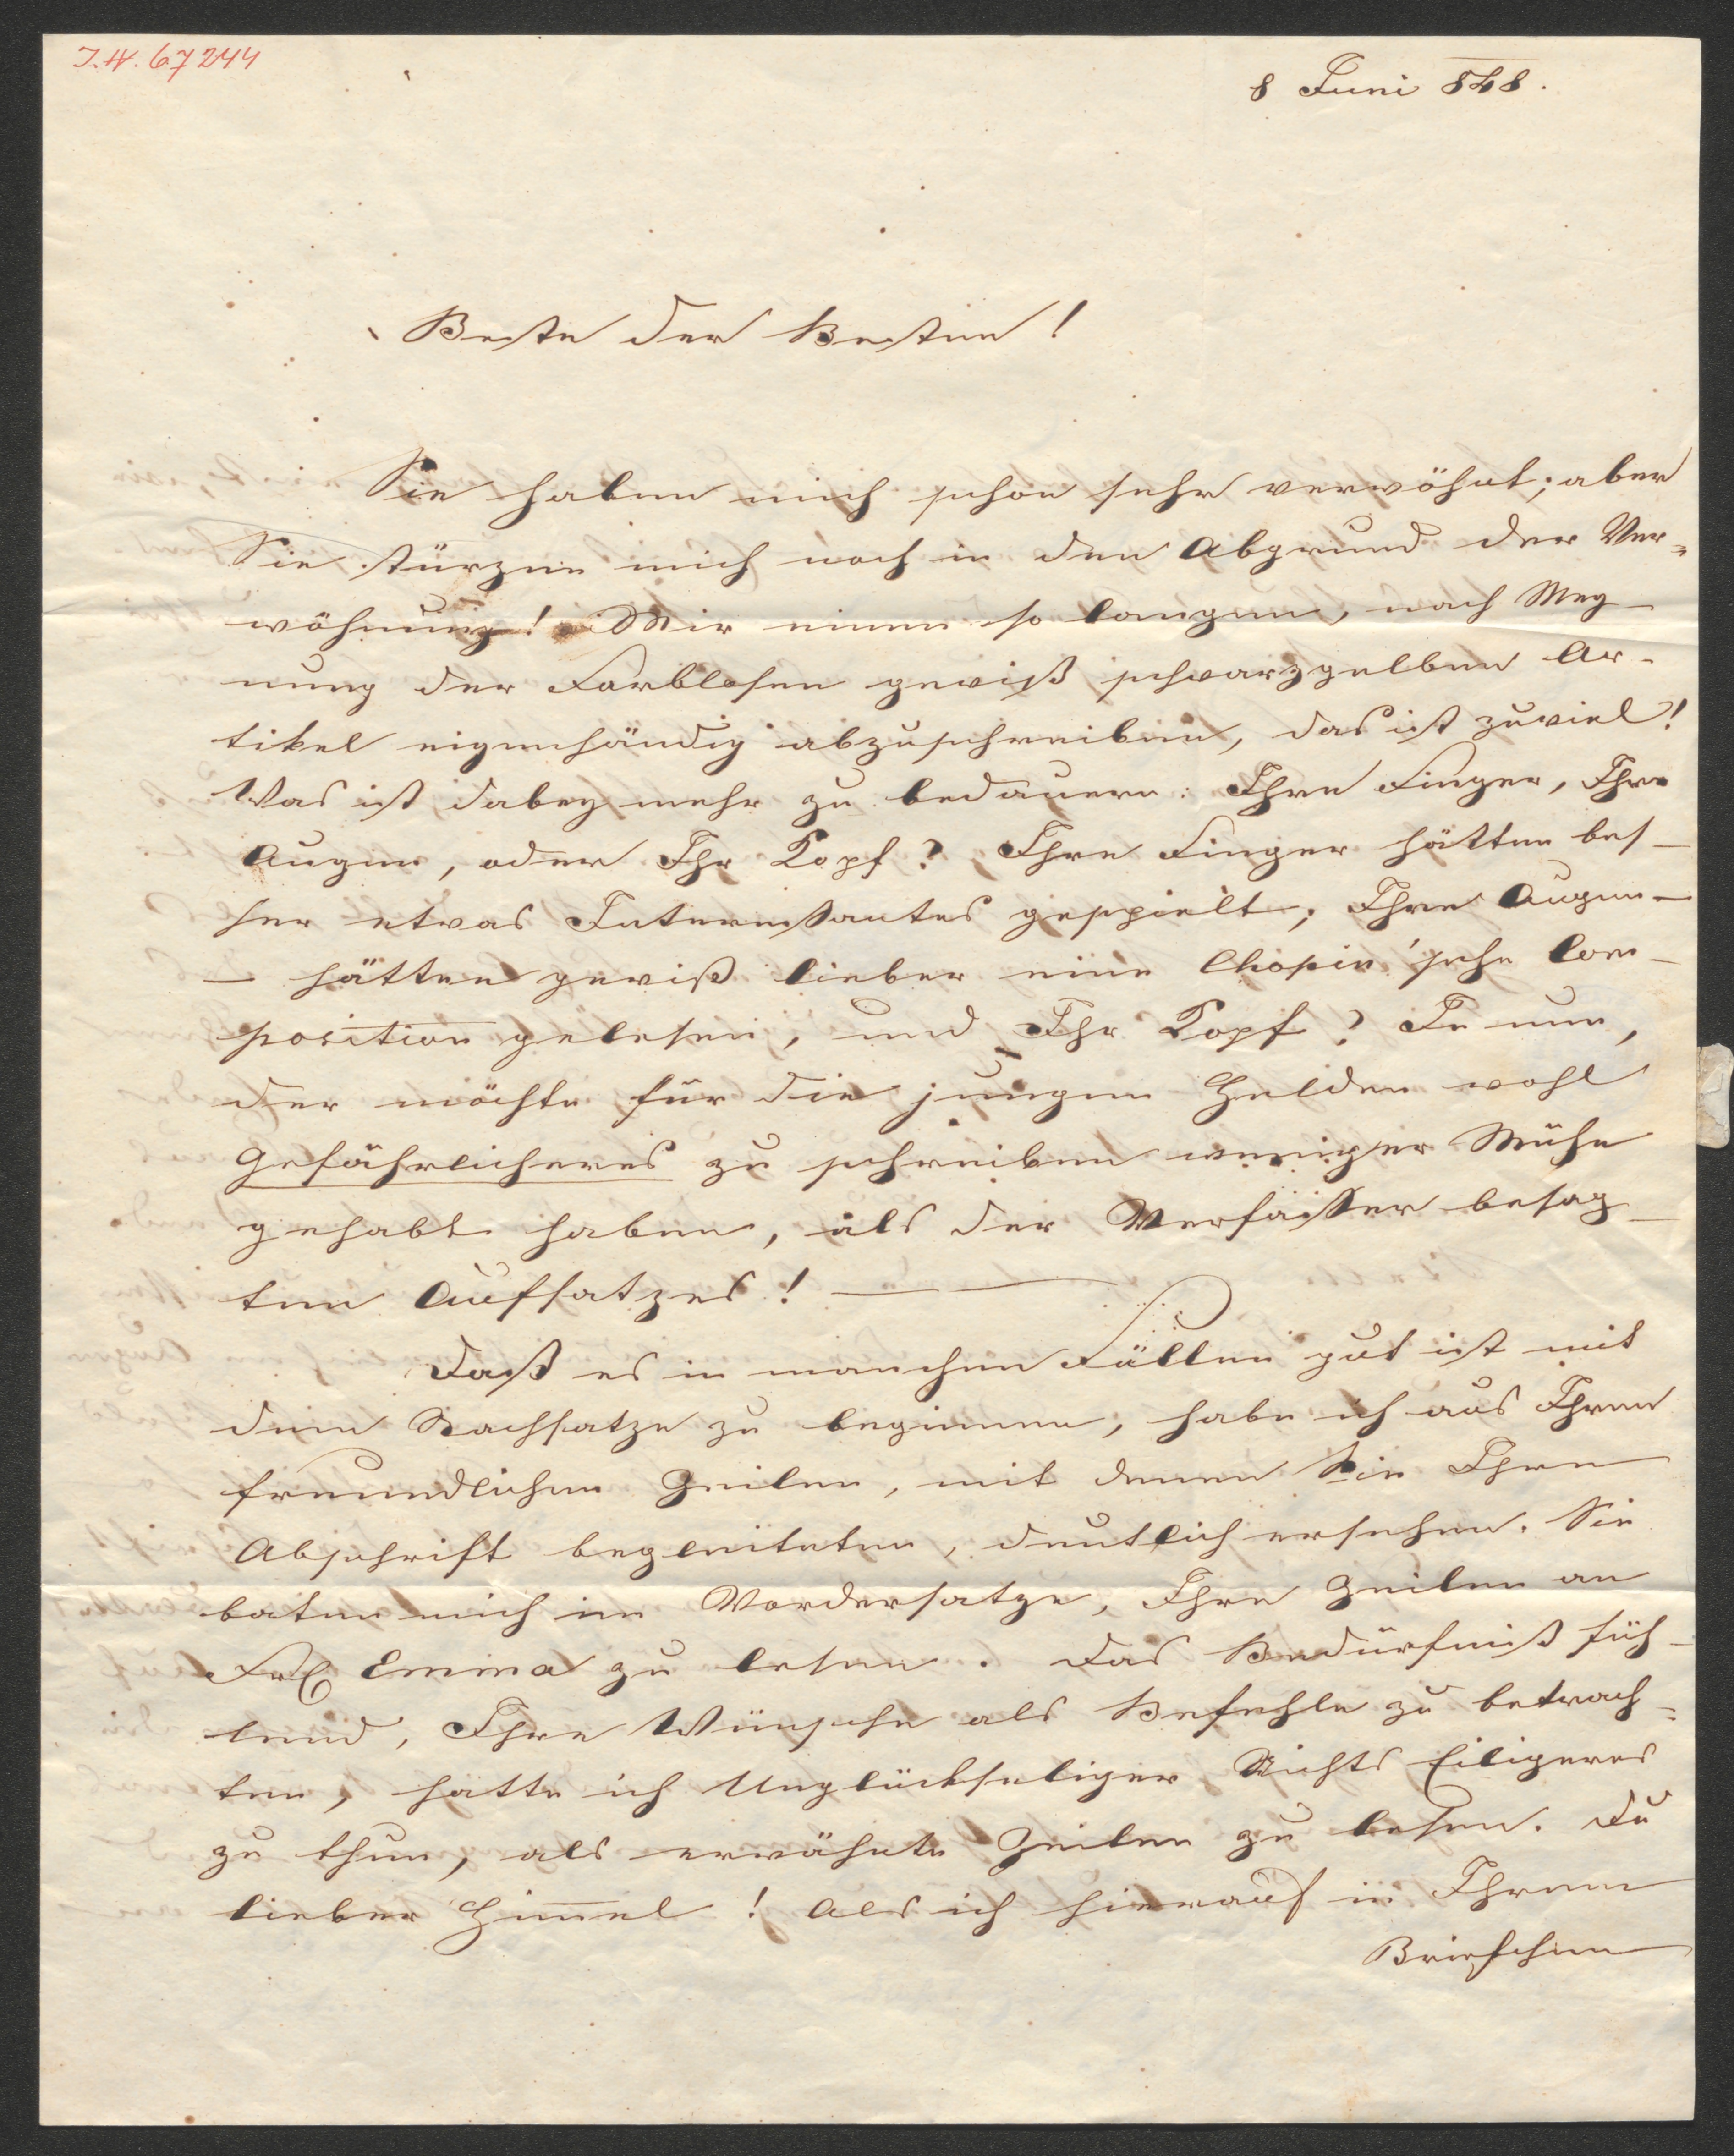 I.N. 67244
8 Juni 848.
Beste der Besten!
Sie haben mich schon sehr verwöhnt; aber
Sie stürzen mich noch in den Abgrund der Ver=
wöhnung! Mir einen so langen, nach Mey-
nung der Farblosen gewiß schwarzgelben Ar-
tikel eigenhändig abzuschreiben, das ist zuviel!
Was ist dabey mehr zu bedauern: Ihre Finger, Ihre
Augen, oder Ihr Kopf? Ihre Finger hätten bes-
ser etwas Interessantes gespielt; Ihre Augen –
– hätten gewiß lieber eine Chopin'sche Com-
position gelesen, und Ihr Kopf? Je nun,
der möchte für die jungen Helden wohl
Gefährlicheres zu schreiben weniger Mühe
gehabt haben, als der Verfasser besag-
ten Aufsatzes! —
Daß es in manchen Fällen gut ist mit
dem Nachsatze zu beginnen, habe ich aus Ihren
freundlichen Zeilen, mit denen Sie Ihre
Abschrift begleiteten, deutlich ersehen. Sie
baten mich im Vordersatze, Ihre Zeilen an
Frl Emma zu lesen. Das Bedürfniß füh-
lend, Ihre Wünsche als Befehle zu betrach=
ten, hatte ich Unglückseliger Nichts Eiligeres
zu thun, als erwähnte Zeilen zu lesen. Du
lieber Himmel! Als ich hierauf in Ihrem
Briefchen